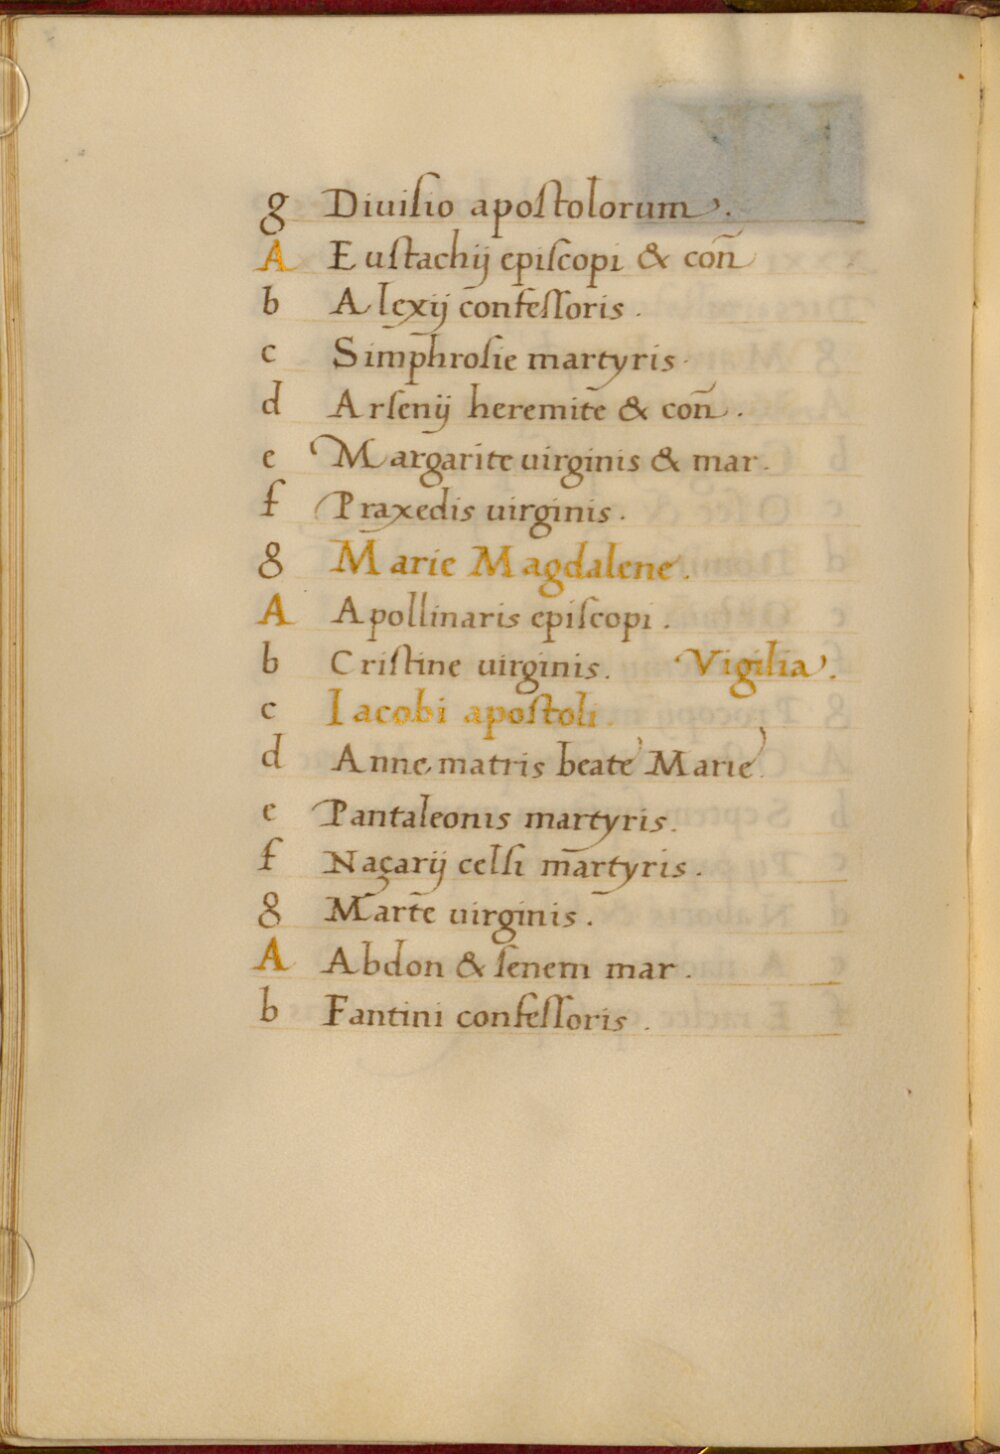 g Diuiſio apoſtolorum.
A Euſtachij epiſcopi & con̄
b Alexij confeſſoris.
c Simphroſie martyris.
d Arſenij heremite & con̄.
e Margarite uirginis & mar.
f Praxedis uirginis.
g Marie Magdalene.
A Apollinaris epiſcopi.
b Criſtine uirginis. Vigilia.
c Iacobi apoſtoli.
d Anne matris beate Marie
e Pantaleonis martyris.
f Naçarij celſi martyris.
g Marte uirginis.
A Abdon & ſenem mar.
b Fantini confeſſoris.